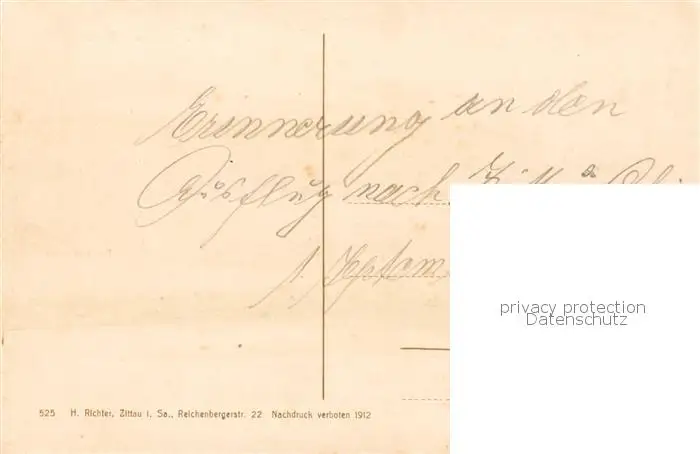 Erinnerung an den
Ausflug nach
1. Septem
privacy protection
Datenschutz
525 H. Richter, Zittau i. Sa., Reichenbergerstr. 22 Nachdruck verboten 1912